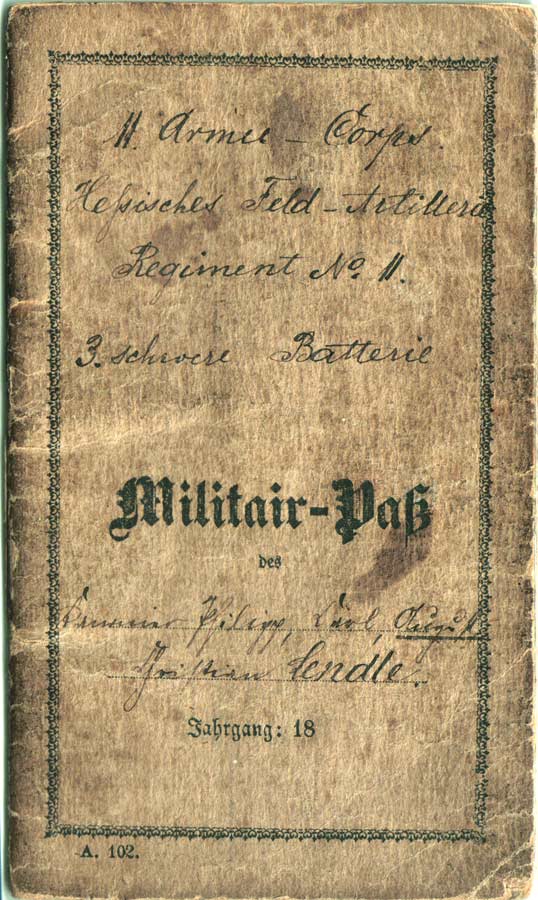 11. Armee-Corps.
Heßisches Feld-Artillerie
Regiment No. 11.
3. schwere Batterie
Militair-Paß
des
Philipp, Carl, August
Christian Lendle.
Jahrgang: 18
A. 102.